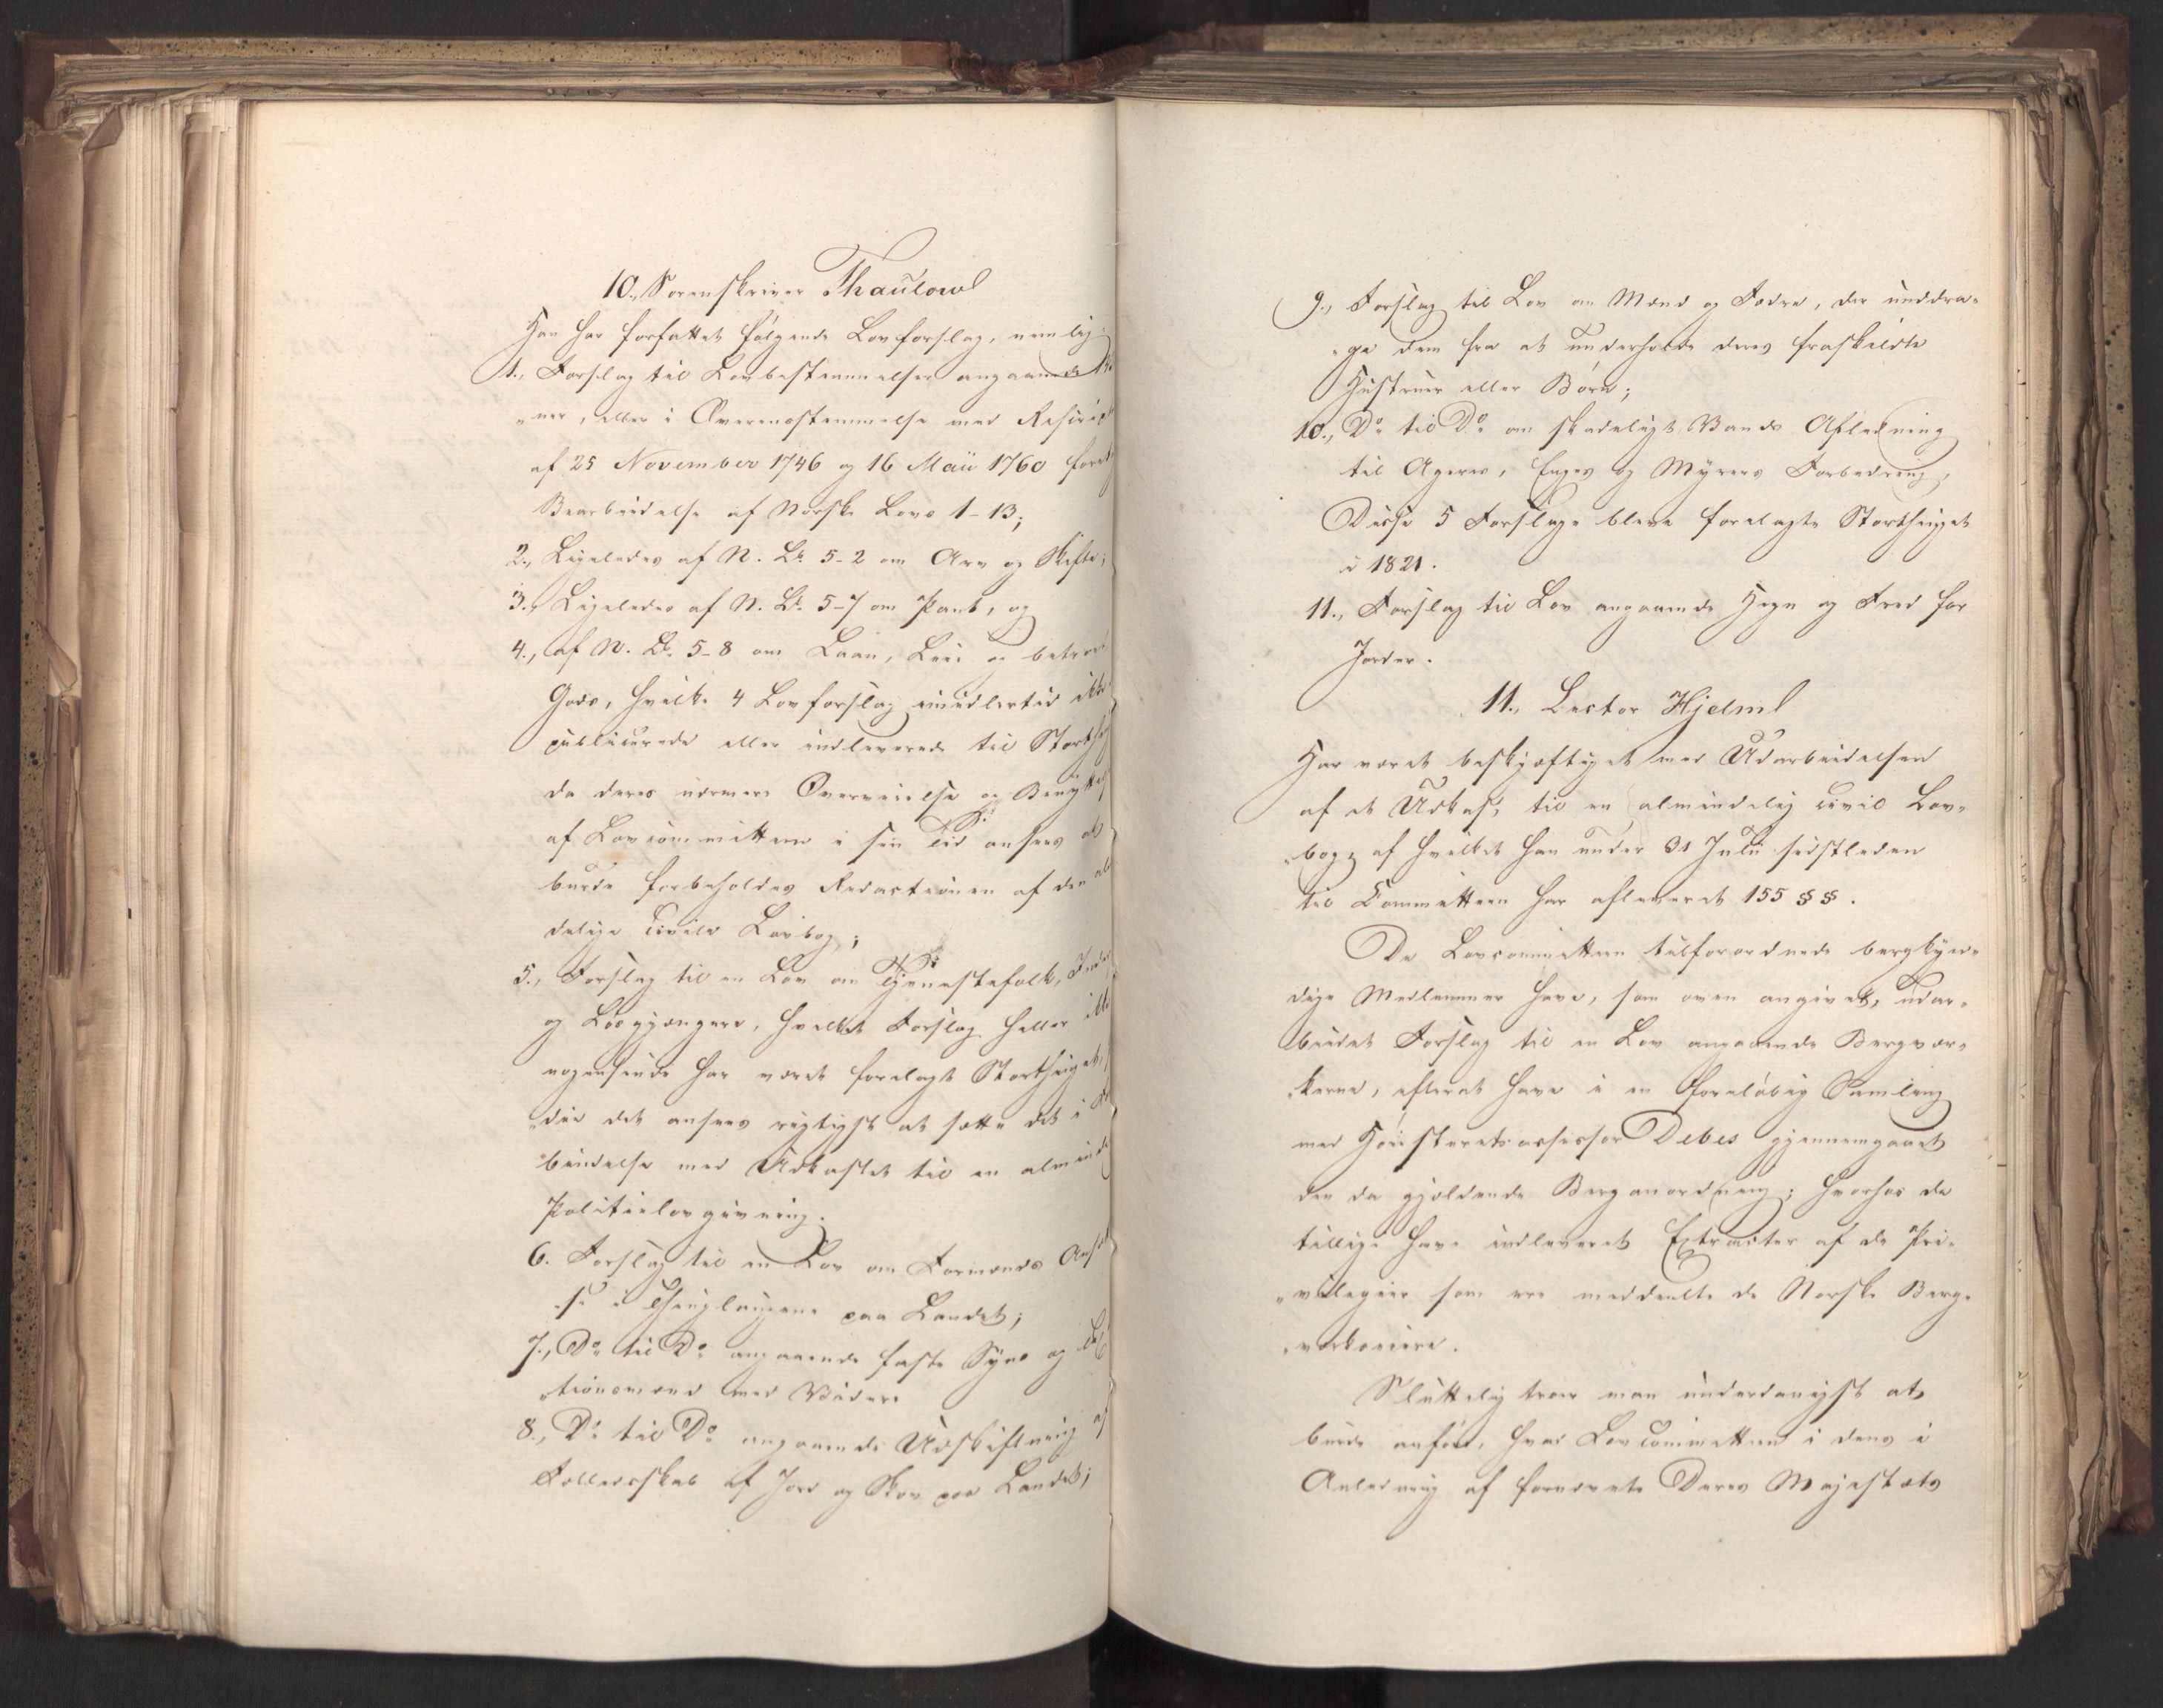 10., Sorenskriver Thaulow
Han har forfattet følgende Lovforslag, nemlig:
1., Forslag til Lovbestemmelser angaaende
„ner, eller i Overensstemmelse med Rescript
af 25 November 1746 og 16 Maii 1760
Bearbeidelse af Norske Lovs 1-13;
2., Ligeledes af N. Ls 5-2 om Arv og Skifte;
3., Ligeledes af N. Ls 5-7 om Pant, og
4., af N. Ls 5-8 om Laan, Leie og betroet
Gods, hvilke 4 Lovforslag imidlertid ikke
publicerede eller indleverede til Storth
da deres nærmere Overveielse og Benyttelse
af Lovcommitteen i sin Tid ansees at
burde forbeholdes Redactionen af den al
delige civile Lovbog;
5., Forslag til en Lov om Tjenestefolk, Inder
og Løsgjængere, hvilket Forslag heller ikke
nogensinde har været forelagt Storthinget,
„di det ansees rigtigst at sætte det i
bindelse med Udkastet til en alminde
Politielovgivning.
6. Forslag til en Lov om Formænds
„se i Thinglaugene paa Landet;
7., Do til Do angaaende faste Syns og
„tionsmænd med Videre
8., Do til Do angaaende Udskiftning af
Fællesskab af Jord og Skov paa Landet;
9., Forslag til Lov om Mænd og Fædre, der unddra„
„ge dem fra at underholde deres fraskildte
Hustruer eller Børn;
10., Do til Do om skadeligt Vands Afledning
til Ageres, Enges og Myrers Forbedring,
Disse 5 Forslage bleve forelagte Storthinget
i 1821.
11., Forslag til Lov angaaende Hegn og Fred for
Jorder.
11., Lector Hjelm
Har været beskjæftiget med Udarbeidelsen
af et Udkast til en almindelig civil Lov„
„bog, af hvilket han under 31 Julii sidstleden
til Committeen har afleveret 155 § §.
De Lovcommitteen tilforordnede bergkyn„
dige Medlemmer have, som oven angivet, udar„
beidet Forslag til en Lov angaaende Bergvær„
„kerne, efterat have i en foreløbig Samling
med Høiesteretsassessor Debes gjennemgaaet
den da gjældende Berganordning; hvorhos de
tillige have indleveret Extracter af de Pri„
„vilegier som ere meddeelte de Norske Berg„
„værkseiere.
Sluttelig troer man underdanigst at
burde anføre, hvad Lovcommitteen i dens i
Anledning af fornævnte Deres Majestæts